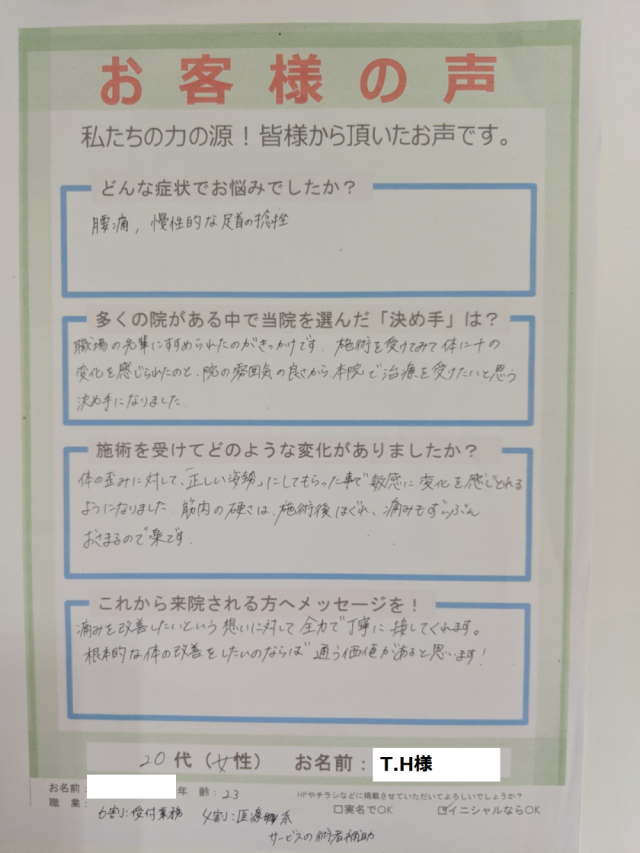 お客様の声
私たちの力の源！皆様から頂いたお声です。
どんな症状でお悩みでしたか？
腰痛，慢性的な足首の捻挫
多くの院がある中で当院を選んだ「決め手」は？
職場の先輩にすすめられたのがきっかけです. 施術を受けてみて体に＋の
変化を感じられたのと、院の雰囲気の良さから、本院で治療を受けたいと思う
決め手になりました.
施術を受けてどのような変化がありましたか？
体の歪みに対して、「正しい姿勢」にしてもらった事で敏感に変化を感じとれる
ようになりました. 筋肉の硬さは、施術後ほぐれ、痛みもずいぶん
おさまるので楽です.
これから来院される方へメッセージを！
痛みを改善したいという想いに対して全力で丁寧に接してくれます。
根本的な体の改善をしたいのならば通う価値があると思います！
20代（女性） お名前：T.H様
お名前： 年齢：23
HPやチラシなどに掲載させていただいてよろしいでしょうか？
職業： 6割：受付業務 4割：医療 系
□実名でOK ☑イニシャルならOK
サービスの術者補助